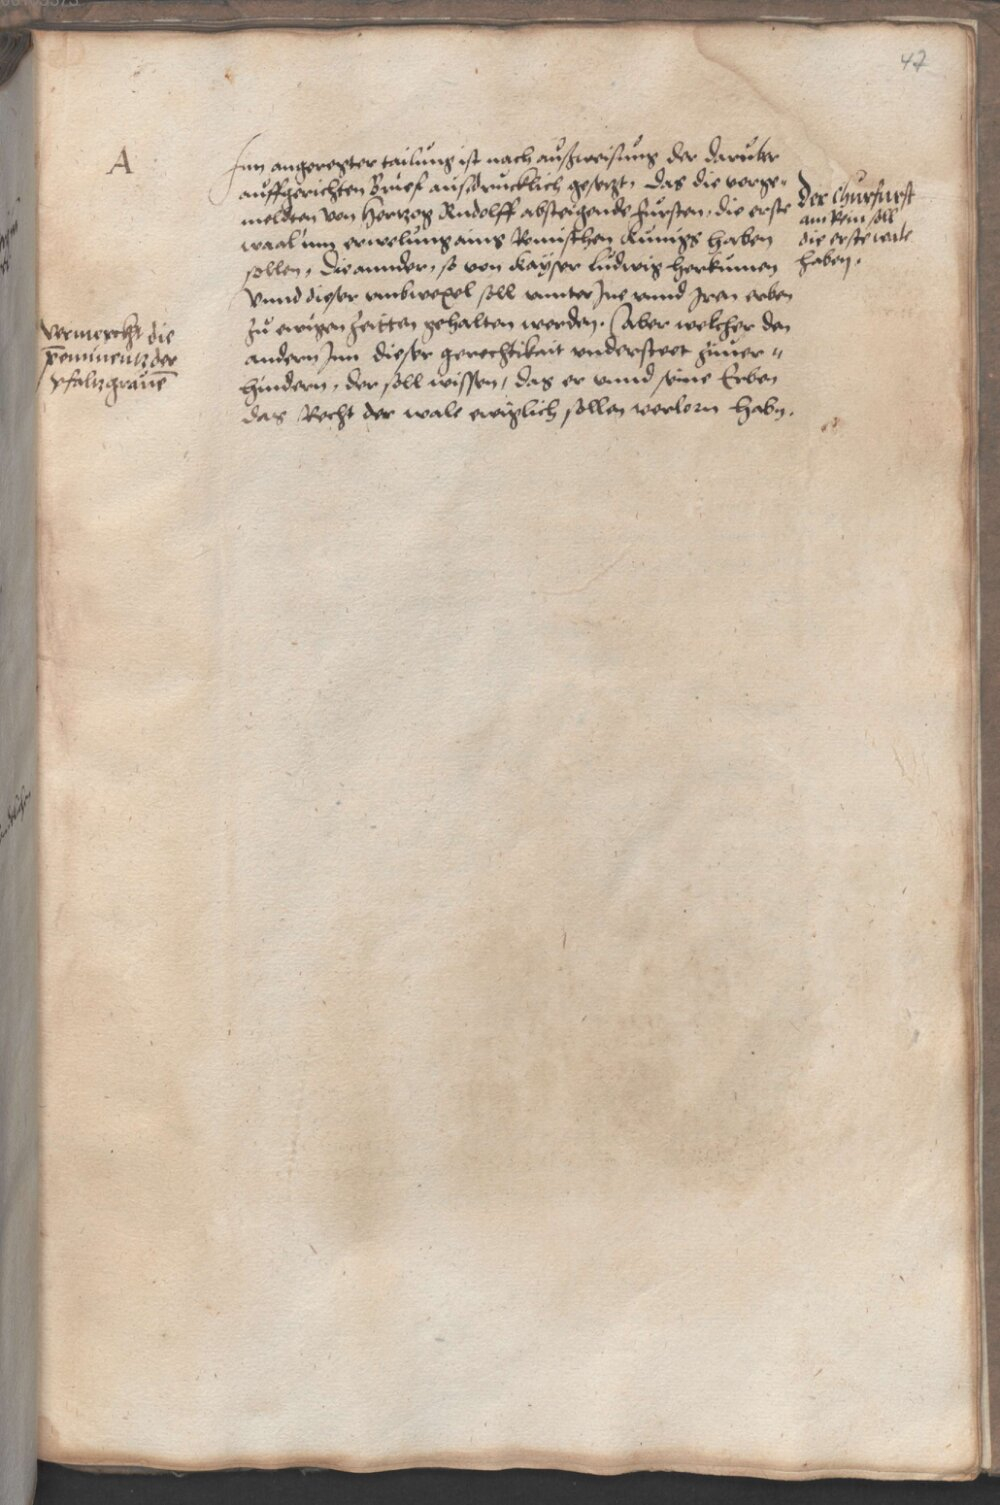 47
A
Inn angeregter tailung ist nach außweisung der daruber
auffgerichten brief ausdrucklich gesetzt, das die vorge-
meldten von Hertzog Rudolff absteigende fursten, die erste
waal unn erwelung ains Romischen Kunigs haben
sollen, die annder, so von Kayser Ludwig herkumen
Vnnd dieser vmbwexel soll vnnter Jne vnnd Jren erben
zu ewigen zeitten gehalten werden. Aber welcher den
andern Jnn dieser gerechtikait vndersteet zuuer-
hindern, der soll wissen, das er vnnd seine Erben
das Recht der wale ewiglich sollen verlorn habn.
Der Churfurst
am Rein soll
die erste wale
haben.
Vermerckht die
preminentz der
pfaltzgrauen